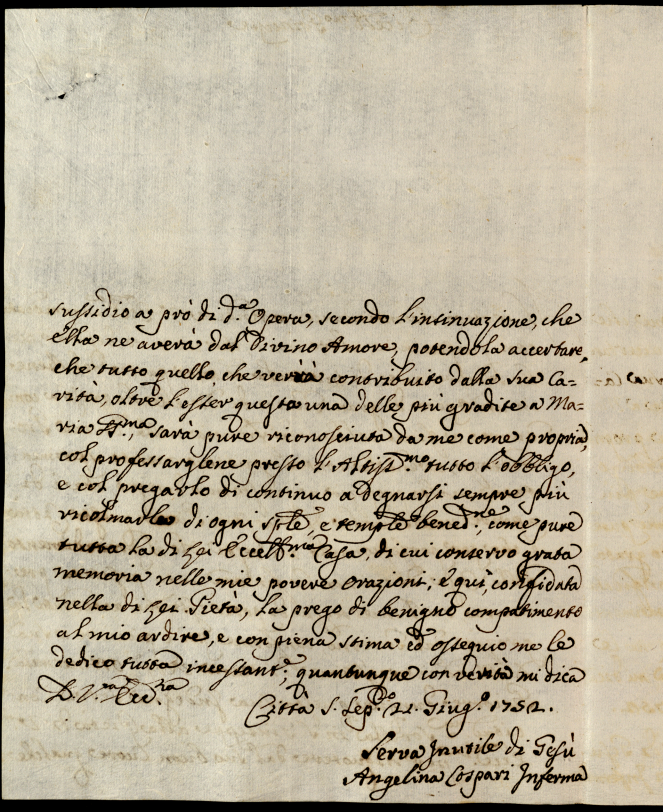 sussidio a prò di d.ª Opera, secondo l'insinuazione, che
ella ne averà dal Divino Amore, potendola accertare,
che tutto quello, che verrà contribuito dalla sua Ca=
rità, oltre l'esser questa una delle più gradite a Ma=
ria SS.ma, sarà pure riconosciuta da me come propria,
col professarglene presso l'Altiss.mo tutto l'obbligo,
e col pregarlo di continuo a degnarsi sempre più
ricolmarla di ogni sple, e temple bened.ne, come pure
tutta la di Lei Eccell.ma Casa, di cui conservo grata
memoria nelle mie povere orazioni; e quì, confidata
nella di Lei Pietà, la prego di benigno compatimento
al mio ardire, e con piena stima ed ossequio me le
dedico tutta incessant.e, quantunque con verità mi dica
D. V.ra Ecc.za
Città S. Sep.o 21. Giug.o 1752.
Serva Inutile di Gesù
Angelina Cospari Inferma